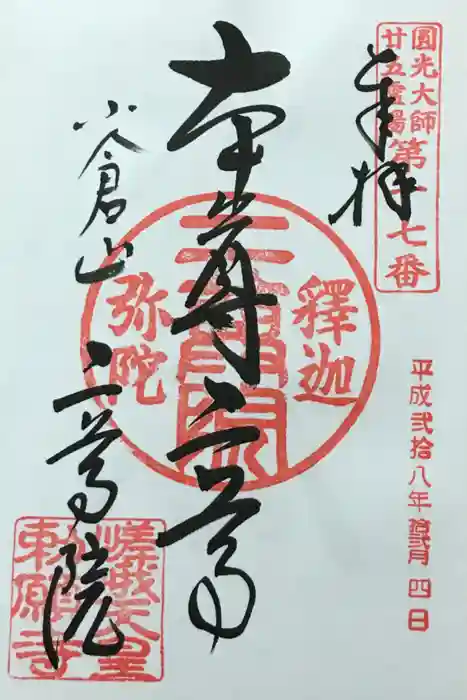 奉拝
圓光大師
廿五霊場
第十七番
平成弐拾八年拾弐月四日
本尊二尊
釋迦
弥陀
小倉山
二尊院
嵯峨天皇
勅願寺